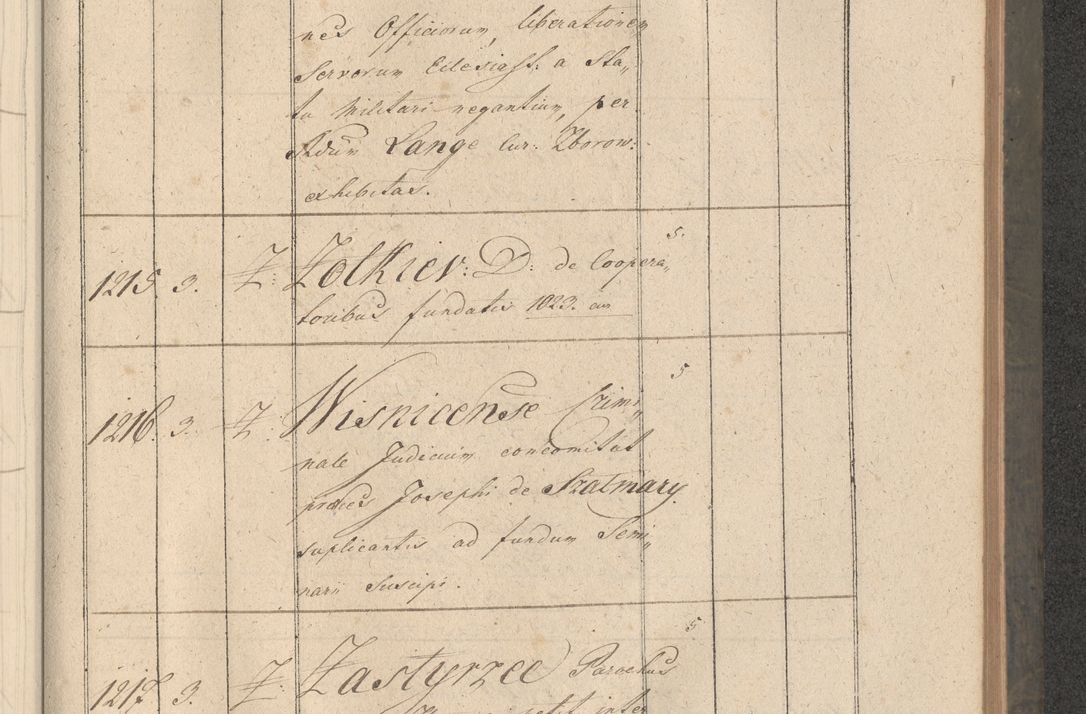 nes Officiorum, liberationem
Servorum Ecclesiass: a Sta„
tu Militari negantium, per
Adum Lange Cur: Zborow:
exhibitas.
5.
1215. 3. Z: Zolkiev: D: de Coopera„
toribus fundatis 1023. an
5
1216. 3. Z: Wisnicense Crimi„
nale Judicium concomitat
preces Josephi de Szatmary
suplicantis ad fundum Semi„
narii suscipi.
5
1217. 3. Z: Zastyrzec Parochus
petit inter